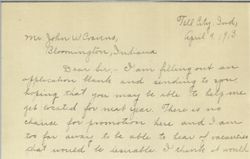 Tell City, Ind,
April 9, 1913
Mr John W Cravens,
Bloomington, Indiana
Dear Sir:- I am filling out an
application blank and sending to you
hoping that you may be able to help me
get located for next year. There is no
chance for promotion here and I am
too far away to be able to hear of vacancies
that would be desirable. I think it would